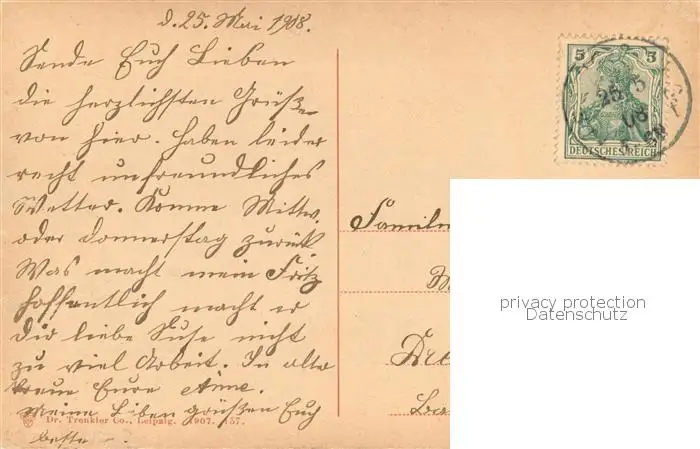 d. 25. Mai 1908.
Sende Euch Lieben
die herzlichsten Grüße
von hier. Haben leider
recht unfreundliches
Wetter. Komme Mittw.
oder Donnerstag zurück
Was macht mein Fritz
hoffentlich macht er
Dir liebe Suse nicht
zu viel Arbeit. In alter
treue Eure Anne.
Meine Lieben grüßen Euch
bestens.
Dr. Trenkler Co., Leipzig. 1907. 157.
5 5
DEUTSCHES REICH
25 5
08
Familie
M
privacy protection
Datenschutz
Dre